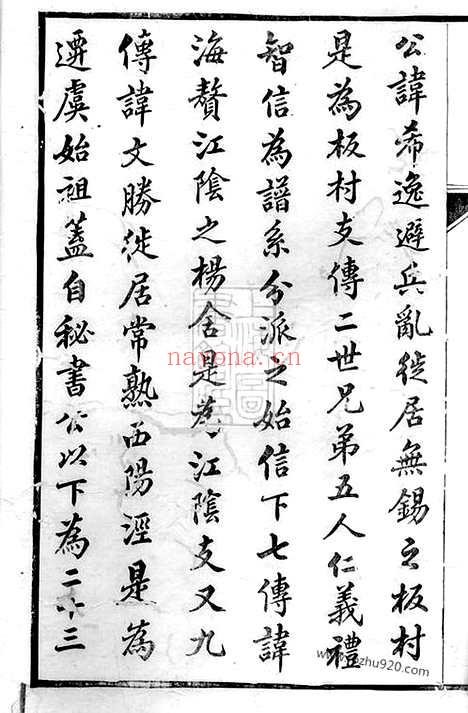 公諱希逸避兵亂徙居無錫之板村
是為板村支傳二世兄弟五人仁義禮
智信為譜系分派之始信下七傳諱
海贅江陰之楊舍是為江陰支又九
傳諱文勝徙居常熟西陽涇是為
遷虞始祖蓋自秘書公以下為二十三
nayona.cn
zhu920.com